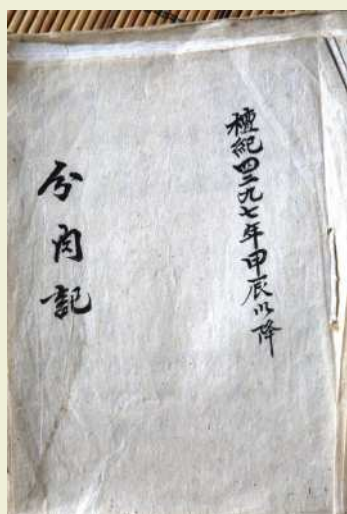 檀紀四二九七年甲辰以降
分肉記